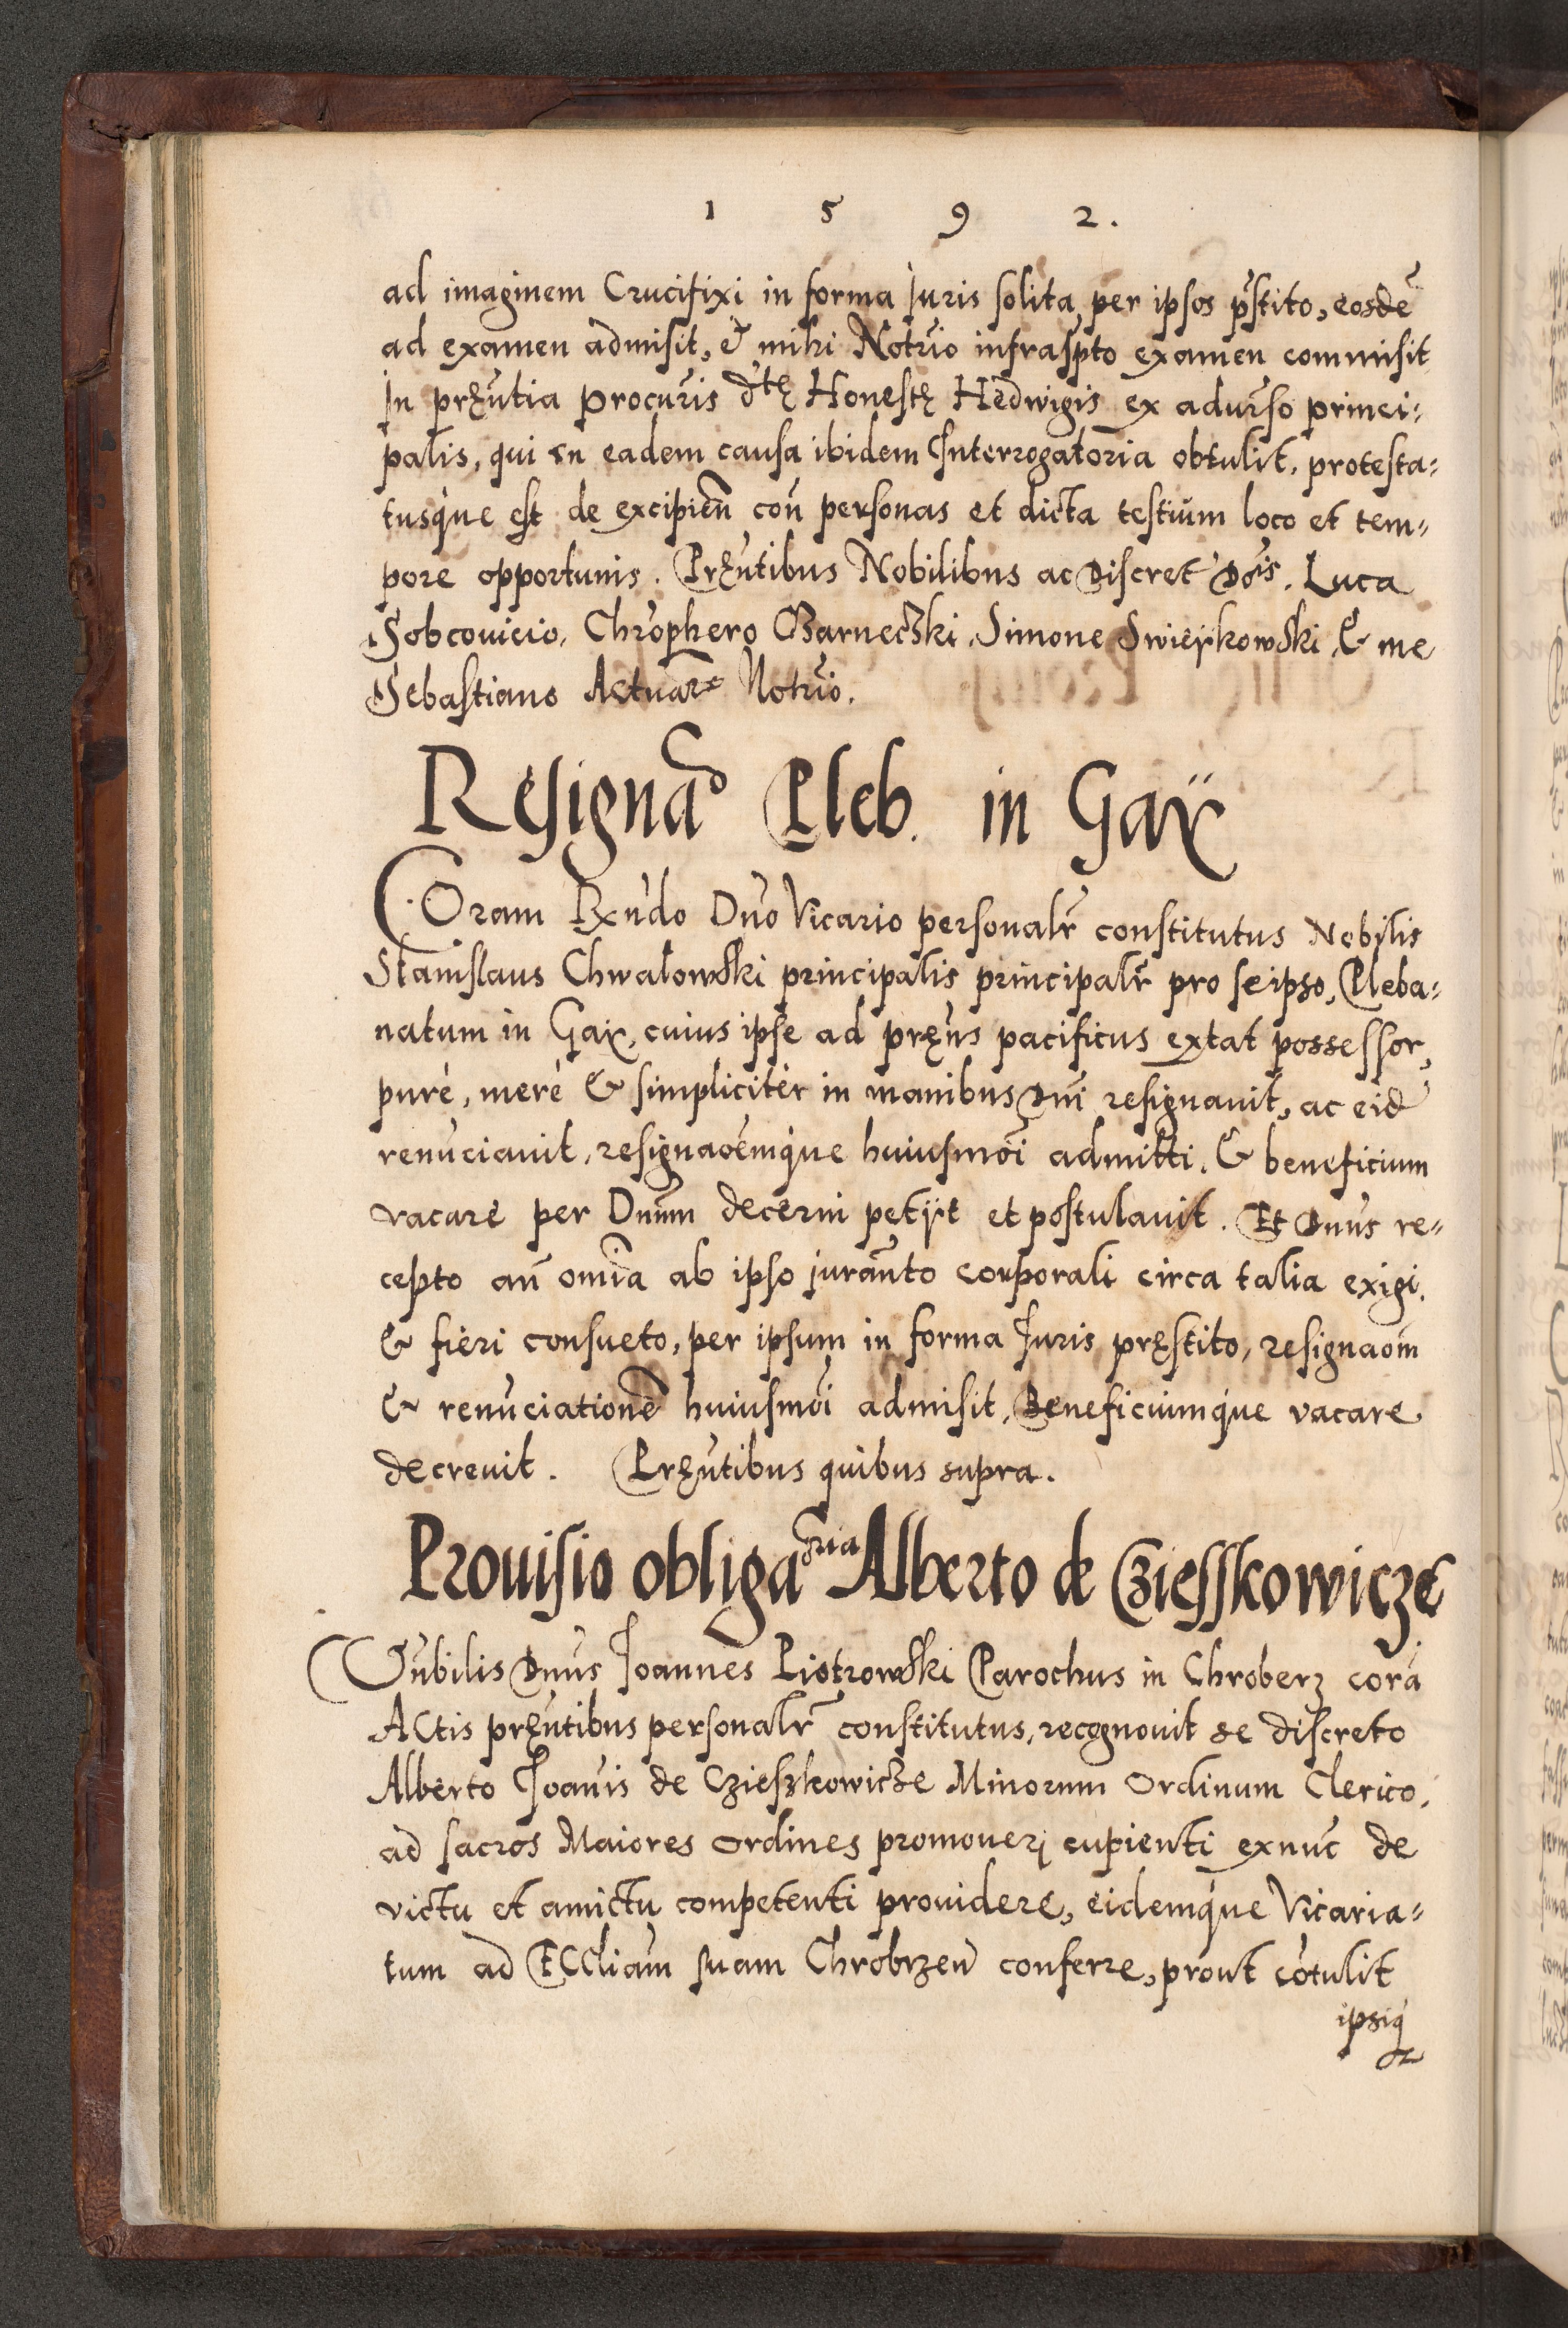 1 5 9 2.
ad imaginem Crucifixi in forma Juris solita per ipsos p̄stito, eosdē
ad examen admisit, & mihi Notr̄io infrasp̄to examen commisit
In pręn̄tia procur̄is d̄tę Honestę Hedwigis ex adur̄so princi=
palis, qui in eadem causa ibidem Interrogatoria obtulit, protesta=
tusq̀ue est de excipien̄ con̄ personas et dicta testium loco et tem=
pore opportunis. Pręn̄tibus Nobilibus ac Discret Dn̄is. Luca
Sobcouicio, Chr̄ophero Czarneczki, Simone Swieykowski, & me
Sebastiano Actuar Notr̄io.
Resignao Pleb. in Gaÿ
Coram Rn̄do Dn̄o Vicario personalr̄ constitutus Nobilis
Stanislaus Chwalowski principalis principalr̄ pro seipso, Pleba=
natum in Gaÿ, cuius ipse ad pręn̄s pacificus extat possessor,
purè, merè & simplicitèr in manibus Dn̄i resignauit, ac eid̄
renūciauit, resignaoēmq̀ue huiusmōi admitti, & beneficium
vacare per Dnūm decerni petÿt et postulauit. Et Dnūs re=
cepto an̄ om̄ia ab ipso jurān̄to corporali circa talia exigi,
& fieri consueto, per ipsum in forma Juris pręstito, resignaom̄
& renūciationē huiusmōi admisit, Beneficiumq̀ue vacare
decreuit. Pręn̄tibus quibus supra.
Prouisio obligaōria Alberto de Cziesskowicze
Nobilis Dnūs Joannes Piotrowski Parochus in Chroberz corā
Actis pręn̄tibus personalr̄ constitutus, recognouit se discreto
Alberto Joan̄is de Czieszkowicze Minorum Ordinum Clerico,
ad sacros Maiores Ordines promoueri cupienti exnūc de
victu et amictu competenti prouidere, eidemq̀ue Vicaria=
tum ad Eccl̄iam suam Chrobrzen̄ conferre, prout cōtulit
ipsiq